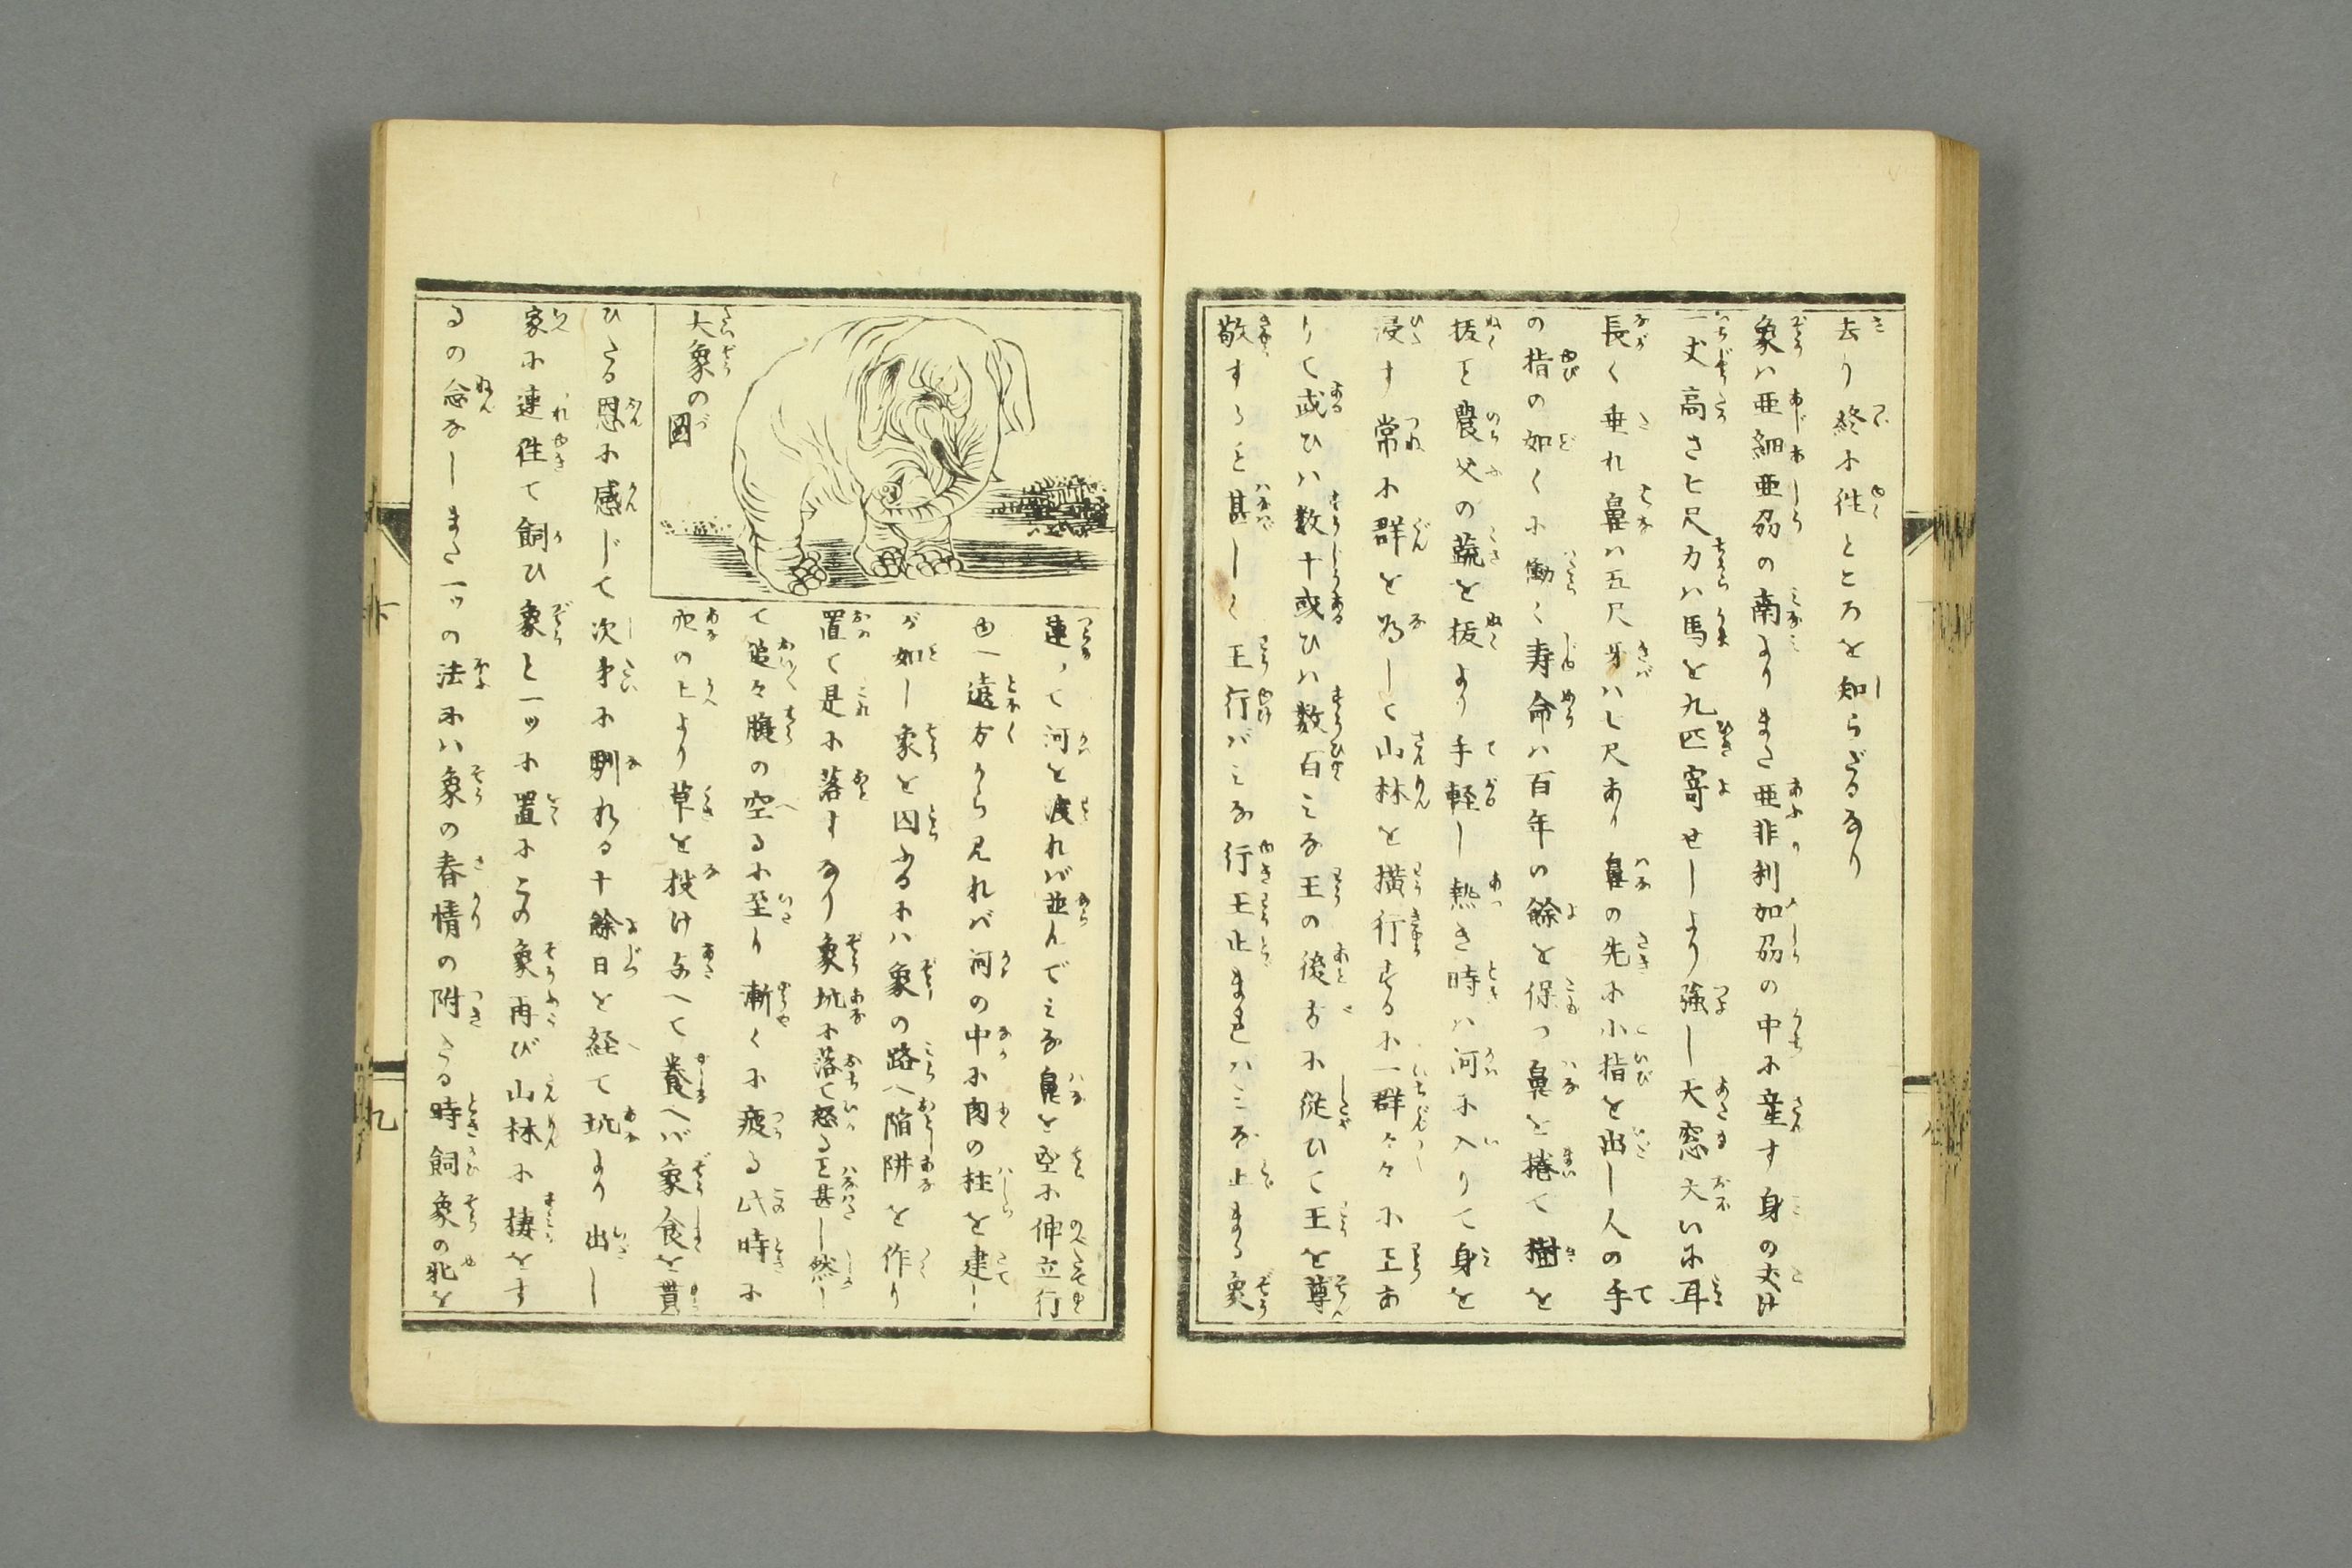 去り終に往ところを知らざるなり
象ハ亜細亜劦の南よりまた亜非利加劦の中に産す身の丈け
一丈高さ七尺力ハ馬を九匹寄せしより強し天窓大いに耳
長く垂れ鼻ハ五尺牙ハ七尺あり鼻の先に小指を出し人の手
の指の如くに働く寿命ハ百年の餘を保つ鼻を捲て樹を
抜こと農父の蔬を抜より手軽し熱き時ハ河に入りて身を
浸す常に群を為して山林を横行するに一群々々に王あ
りて或ひハ数十或ひハ数百ミな王の後方に従ひて王を尊
敬すること甚しく王行バミな行王止まれハミな止まる象
連って河を渡れバ並んでミな鼻を空に伸立行
由一遠方から見れバ河の中に肉の柱を建し
が如し象を囚ふるにハ象の路へ陥阱を作り
置て是に落すなり象坑に落て怒ること甚し然し
て追々腹の空るに至り漸くに疲る此時に
穴の上より草を投け与へて養へバ象食を貰
ひたる恩に感じて次第に馴れる十餘日を経て坑より出し
家に連往て飼ひ象と一ツに置にこの象再び山林に棲をす
るの念なしまた一ツの法にハ象の春情の附たる時飼象の牝を
大象の図
九